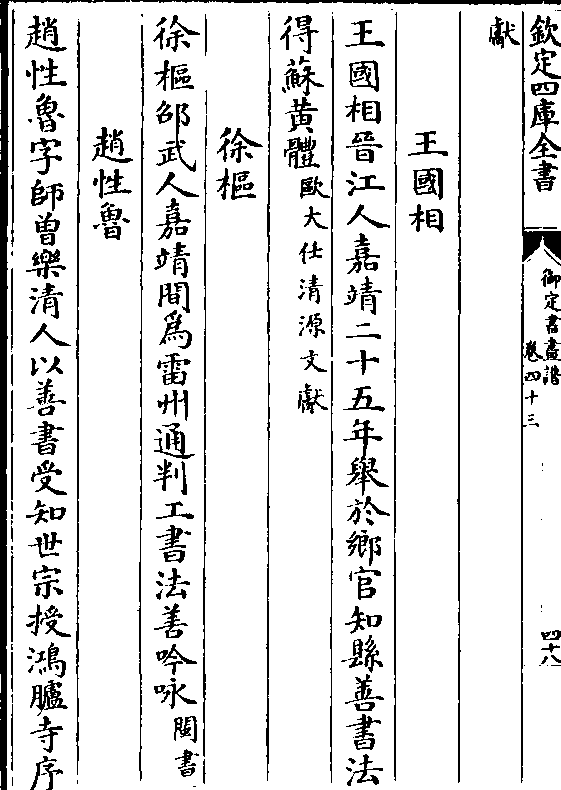 欽定四庫全書
御定書畫譜
卷四十三
四十八
獻
王國相
王國相晉江人嘉靖二十五年舉於鄉官知縣善書法
得蘇黃體歐大仕清源文獻
徐樞
徐樞邵武人嘉靖間爲雷州通判工書法善吟咏閩書
趙性魯
趙性魯字師曾樂清人以善書受知世宗授鴻臚寺序